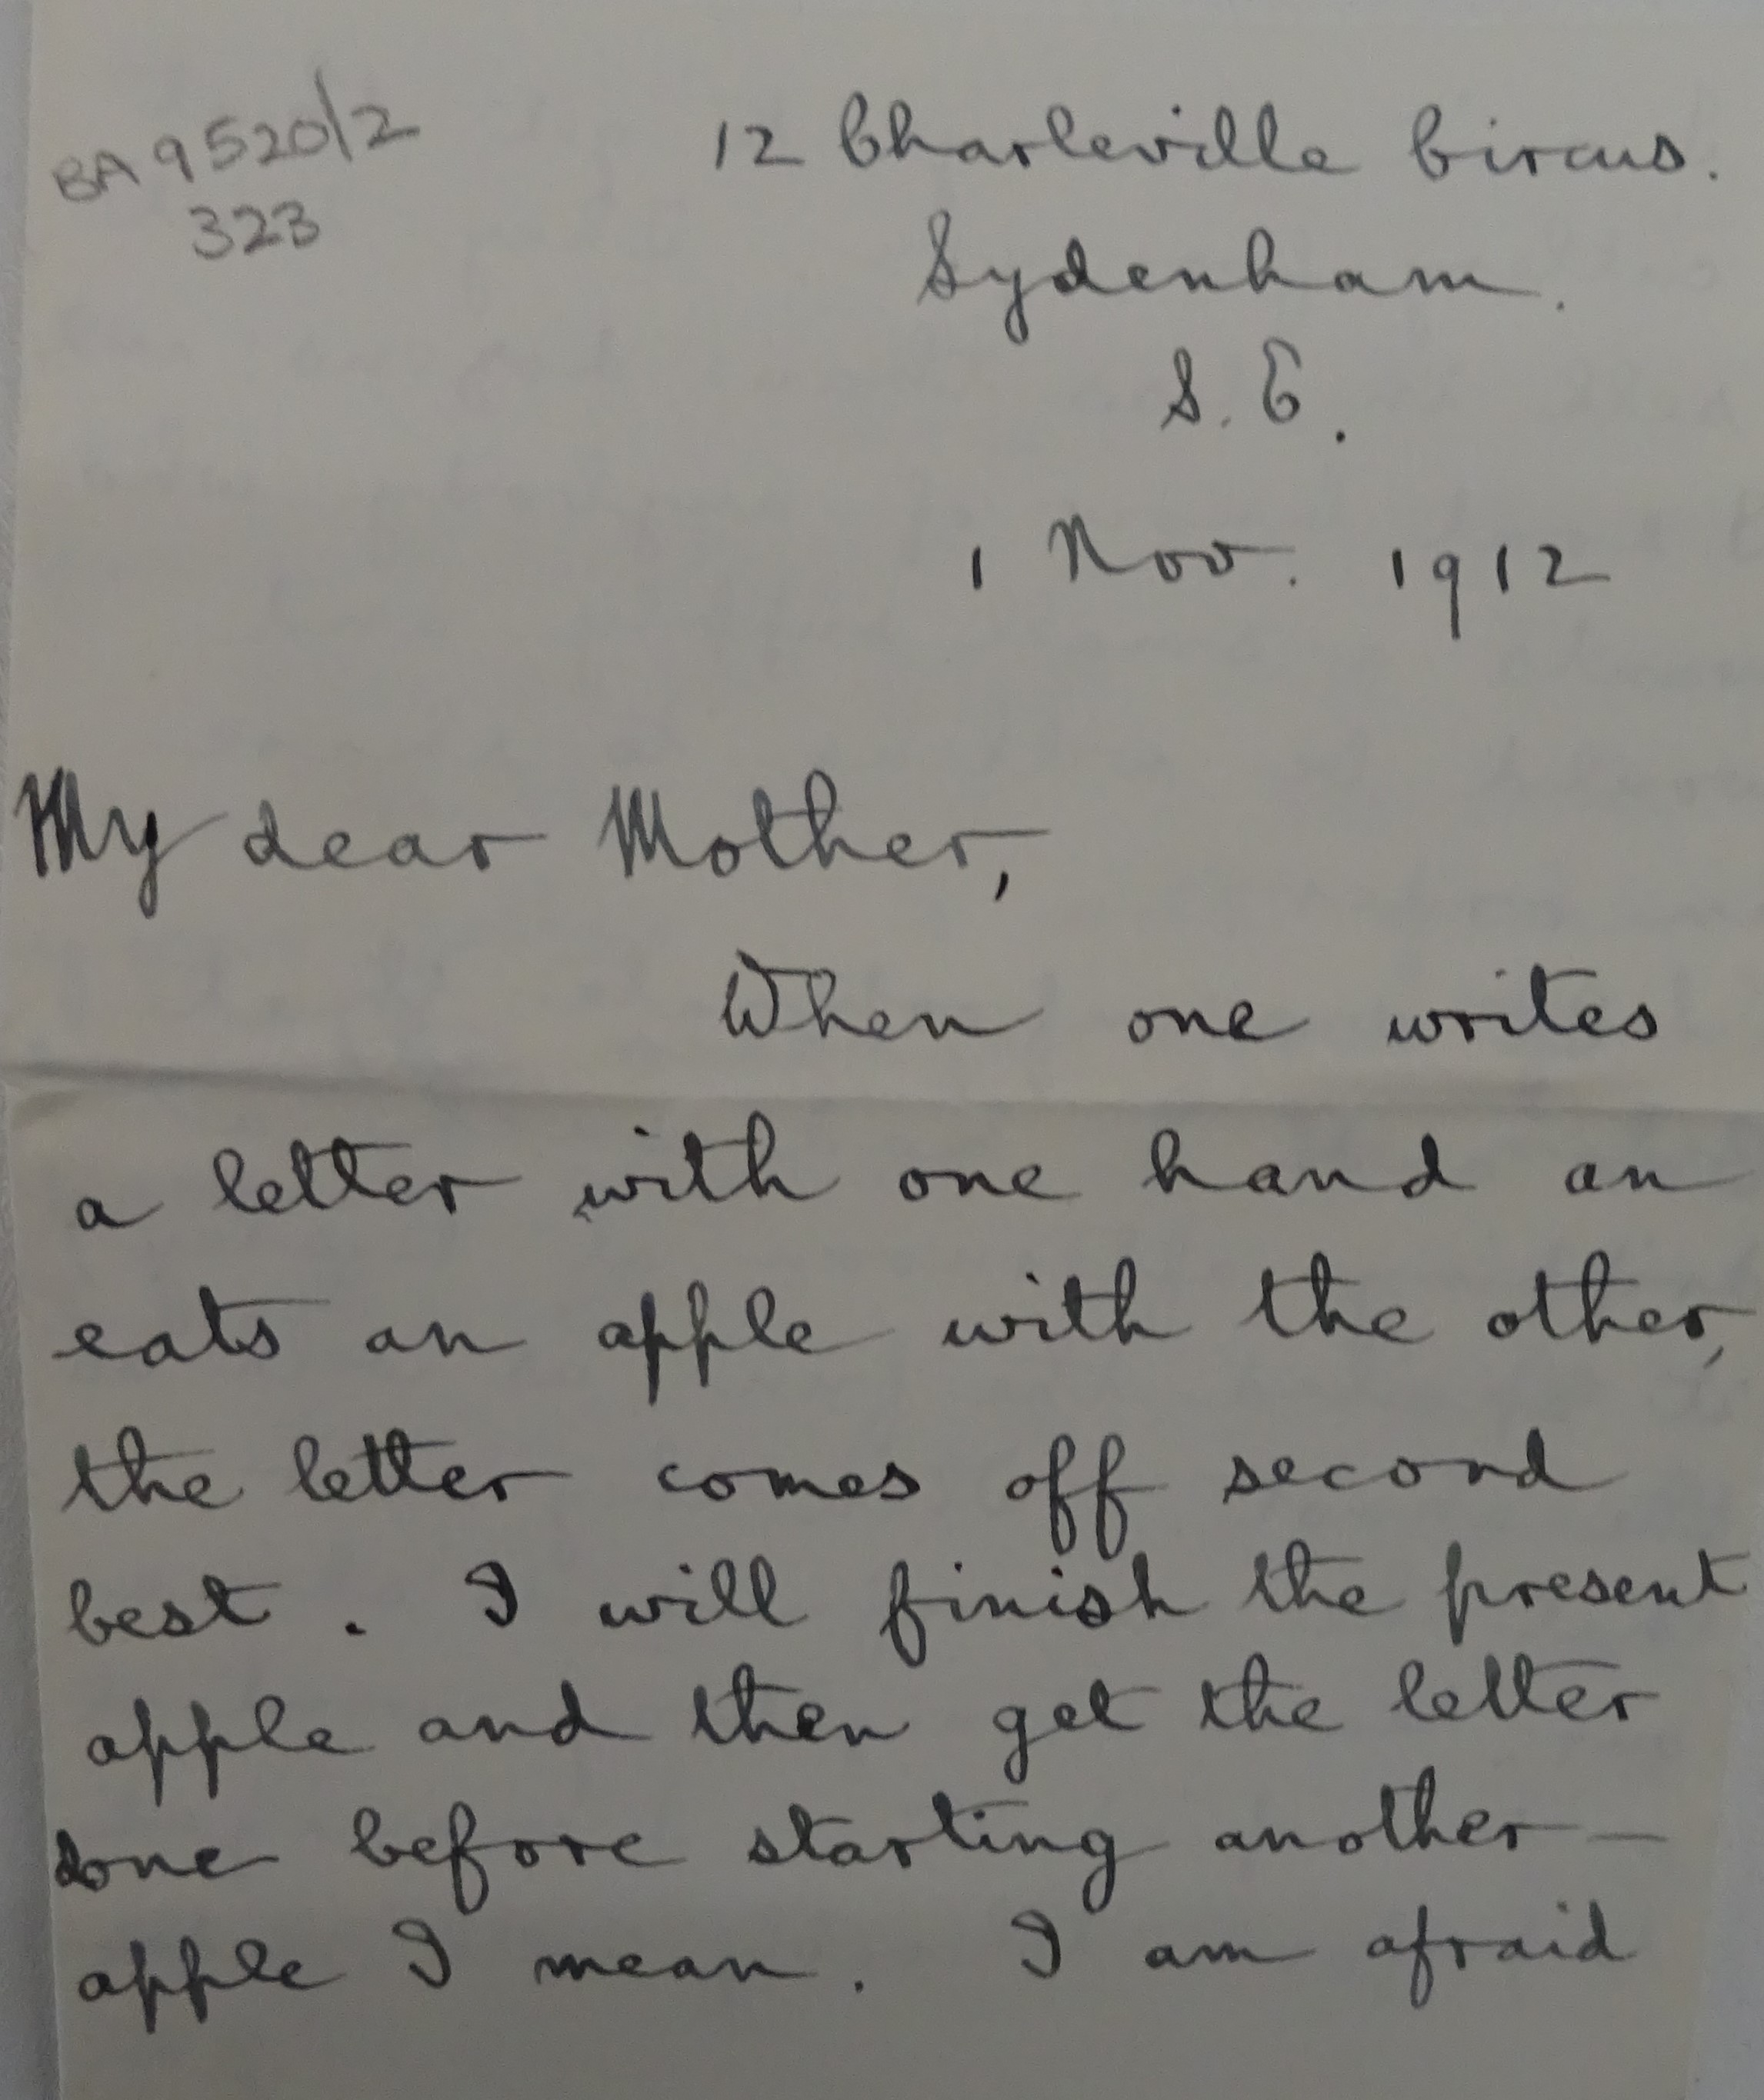 BA 9520/2
323
12 Charleville Circus.
Sydenham.
S. E.
1 Nov. 1912
My dear Mother,
When one writes
a letter with one hand an
eats an apple with the other,
the letter comes off second
best. I will finish the present
apple and then get the letter
done before starting another—
apple I mean. I am afraid